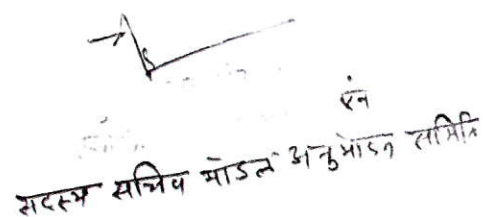 एंन
सदस्य सचिव मोडल अनुमोदन समिति